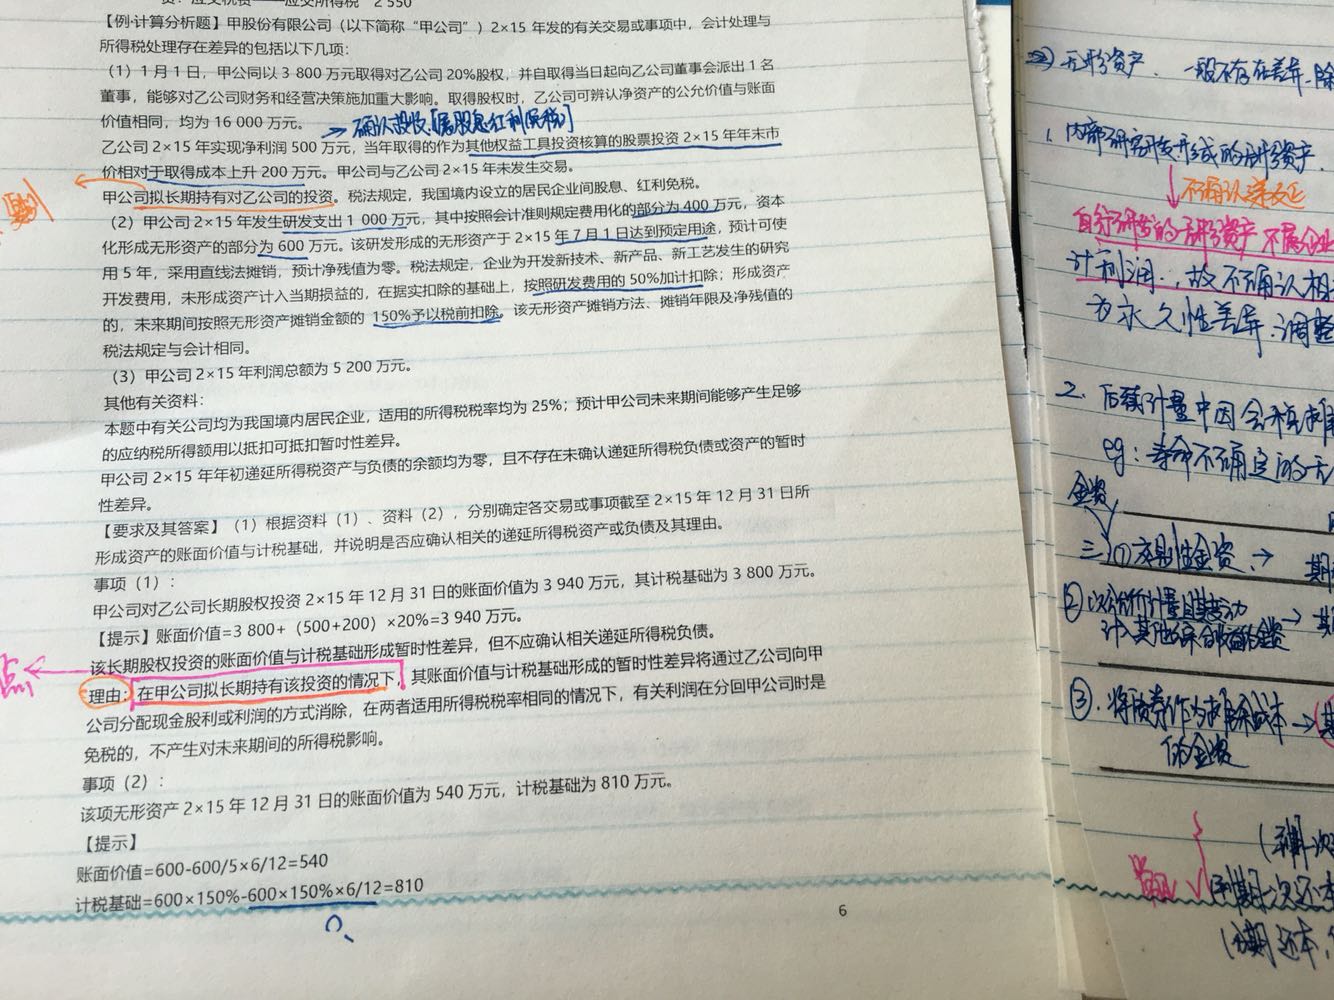 贷：应交税费——应交所得税 2 550
【例·计算分析题】甲股份有限公司（以下简称“甲公司”）2×15 年发的有关交易或事项中，会计处理与
所得税处理存在差异的包括以下几项：
（1）1 月 1 日，甲公同以 3 800 万元取得对乙公司 20%股权，并自取得当日起向乙公司董事会派出 1 名
董事，能够对乙公司财务和经营决策施加重大影响。取得股权时，乙公司可辨认净资产的公允价值与账面
价值相同，均为 16 000 万元。
确认投收[属股息红利免税]
乙公司 2×15 年实现净利润 500 万元，当年取得的作为其他权益工具投资核算的股票投资 2×15 年年末市
价相对于取得成本上升 200 万元。甲公司与乙公司 2×15 年未发生交易。
甲公司拟长期持有对乙公司的投资。税法规定，我国境内设立的居民企业间股息、红利免税。
（2）甲公司 2×15 年发生研发支出 1 000 万元，其中按照会计准则规定费用化的部分为 400 万元，资本
化形成无形资产的部分为 600 万元。该研发形成的无形资产于 2×15 年 7 月 1 日达到预定用途，预计可使
用 5 年，采用直线法摊销，预计净残值为零。税法规定，企业为开发新技术、新产品、新工艺发生的研究
开发费用，未形成资产计入当期损益的，在据实扣除的基础上，按照研发费用的 50%加计扣除；形成资产
的，未来期间按照无形资产摊销金额的 150%予以税前扣除。该无形资产摊销方法、摊销年限及净残值的
税法规定与会计相同。
（3）甲公司 2×15 年利润总额为 5 200 万元。
其他有关资料：
本题中有关公司均为我国境内居民企业，适用的所得税税率均为 25%；预计甲公司未来期间能够产生足够
的应纳税所得额用以抵扣可抵扣暂时性差异。
甲公司 2×15 年年初递延所得税资产与负债的余额均为零，且不存在未确认递延所得税负债或资产的暂时
性差异。
【要求及其答案】（1）根据资料（1）、资料（2），分别确定各交易或事项截至 2×15 年 12 月 31 日所
形成资产的账面价值与计税基础，并说明是否应确认相关的递延所得税资产或负债及其理由。
事项（1）：
甲公司对乙公司长期股权投资 2×15 年 12 月 31 日的账面价值为 3 940 万元，其计税基础为 3 800 万元。
【提示】账面价值=3 800+（500+200）×20%=3 940 万元。
该长期股权投资的账面价值与计税基础形成暂时性差异，但不应确认相关递延所得税负债。
点
理由：在甲公司拟长期持有该投资的情况下，其账面价值与计税基础形成的暂时性差异将通过乙公司向甲
公司分配现金股利或利润的方式消除，在两者适用所得税税率相同的情况下，有关利润在分回甲公司时是
免税的，不产生对未来期间的所得税影响。
事项（2）：
该项无形资产 2×15 年 12 月 31 日的账面价值为 540 万元，计税基础为 810 万元。
【提示】
账面价值=600-600/5×6/12=540
计税基础=600×150%-600×150%×6/12=810
6
无形资产 . 一般不存在差异,除
1. 内部研究开发形成的无形资产
不确认递延
自行研发的无形资产 不属企业
计利润，故不确认相
为永久性差异.调整
2. 后续计量中因会税摊
eg：寿命不确定的无
金资
三 ①交易性金资 →
② 以公允价计量且其变动
计入其他综合收益的金资
③. 将债券作为摊余成本
的金资
到期一次还本